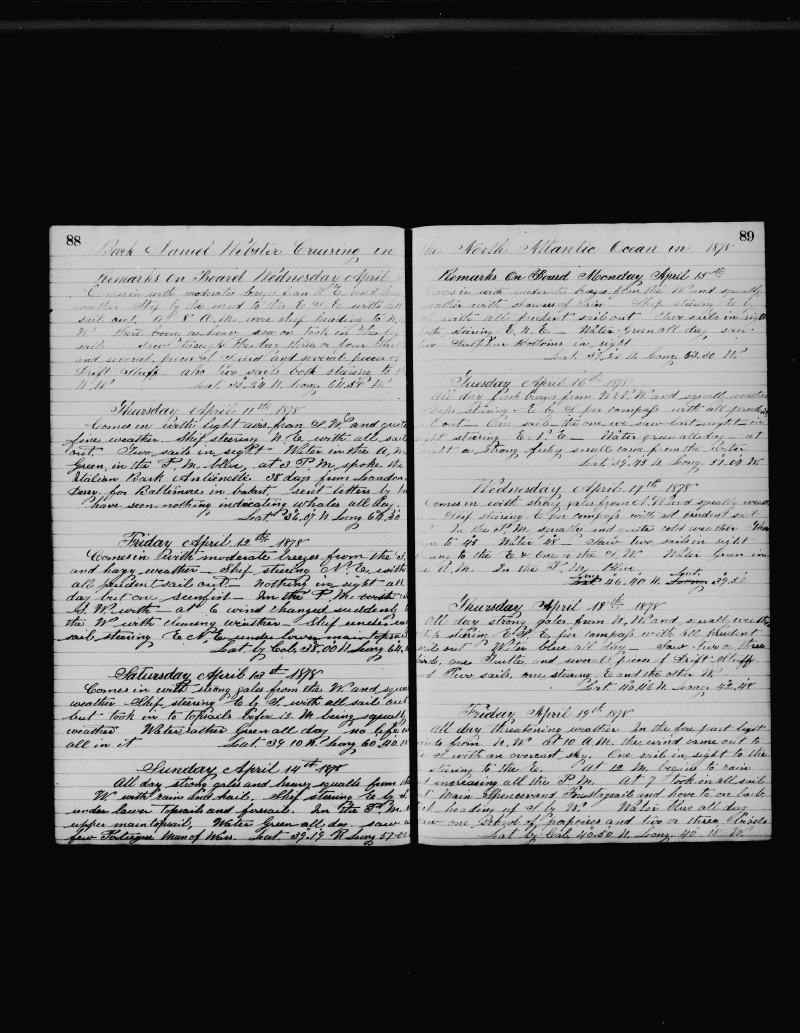 88
Bark Daniel Webster Cruising in
Remarks On Board Wednesday April
Comes in with moderate breezes from N. E. and
weather Ship by the wind to the E. S. E. with all
sail out. At 8 A.M. wore ship heading to N.
W. There being a heavy sea on took in the
sail. Saw through the day three or four
and several pieces of weed and several pieces of
Drift Stuff also two sails both steering to the
N. W. Lat. 35.54 N. Long. 64.50 W.
Thursday April 11th 1878
Comes in with light airs from S. W. and quite
fine weather. Ship steering N E. with all sail
out. Two sails in sight. Water in the A, M
Green, in the P.M. blue, at 3 P M, spoke the
Italian Bark Antionette 38 days from London
Derry, for Baltimore in balast, sent letters by
have seen nothing indicating whales all day
Lat. 36.07 N Long 65.30
Friday April 12th 1878
Comes in with moderate breezes from the S.
and hazy weather — Ship steering N. E. with
all prudent sail out. — Nothing in sight all
day but one sunfish — In the P, M.
S. W. with — at 6 wind changed suddenly to
the W with clearing weather — Ship under
sail, steering E N E. under lower main topsail
Lat by Calc, 38.00 N Long 64.
Saturday April 13th 1878
Comes in with strong gales from the W. and squally
weather Ship steering E by S with all sail out
but took in to topsails Before 12 M being squally
weather Water rather Green all day no life
all in it Lat. 39 10 N. Long 60.40.
Sunday April 14th 1878
All day strong gales and heavy squalls from the
W. with rain and hail, Ship steering E by S
under lower topsails and foresail. In the P.M.
upper maintopsail, Water Green all day saw a
few Portegue Man of Wars. Lat. 39.19 N Long 57.
89
the North Atlantic Ocean in 1878
Remarks On Board Monday April 15th
Comes in with moderate breezes from the W and squally
weather with showers of rain Ship steering E by
S. with all prudent sail out Two sails in sight
both steering E. N. E. — Water Green all day saw
two Sulphur Bottoms in sight
Lat. 39.20 N. Long. 53.30 W.
Tuesday April 16th 1878
All day fresh breezes from W. N. W. and squally weather
Ship steering E by S per compass with all prudent
sail out — One sail — the one we saw last night — in
sight steering E. N. E — Water green all day — at
night a strong fishy smell came from the water
Lat. 39.43 N. Long. 51.04 W.
Wednesday April 17th 1878
Comes in with strong gales from N.W and squally weather
Ship steering E per compass with all prudent sail
In the P.M. squally and quite cold weather Ther
to 48 Water 48 — Saw two sails in sight
steering to the E & one to the S. W. Water Green in
the A.M. In the P.M. Blue.
Lat. 40.40 N. Long. 39.30
Thursday April 18th 1878
All day strong gales from N, W. and squally weather
Ship steering E by S, per compass with all prudent
sail out Water blue all day — Saw two or three
birds, one Turtle and several pieces of Drift Stuff
and Two sails, one steering E and the other W.
Lat. 40.46 N Long. 42.48
Friday April 19th 1878
All day threatening weather In the fore part light
winds from N. W. at 10 A.M. the wind came out to
S with an overcast sky. One sail in sight to the
steering to the E. At 12 M. began to rain
increasing all the P.M. At 7 Took in all sail
but Main Spencer and Forestaysail and hove to on larb
tack heading up S by W. Water blue all day
saw one School of porpoises and two or three Birds
Lat by Calc 40.50 N Long. 40. 15 W.